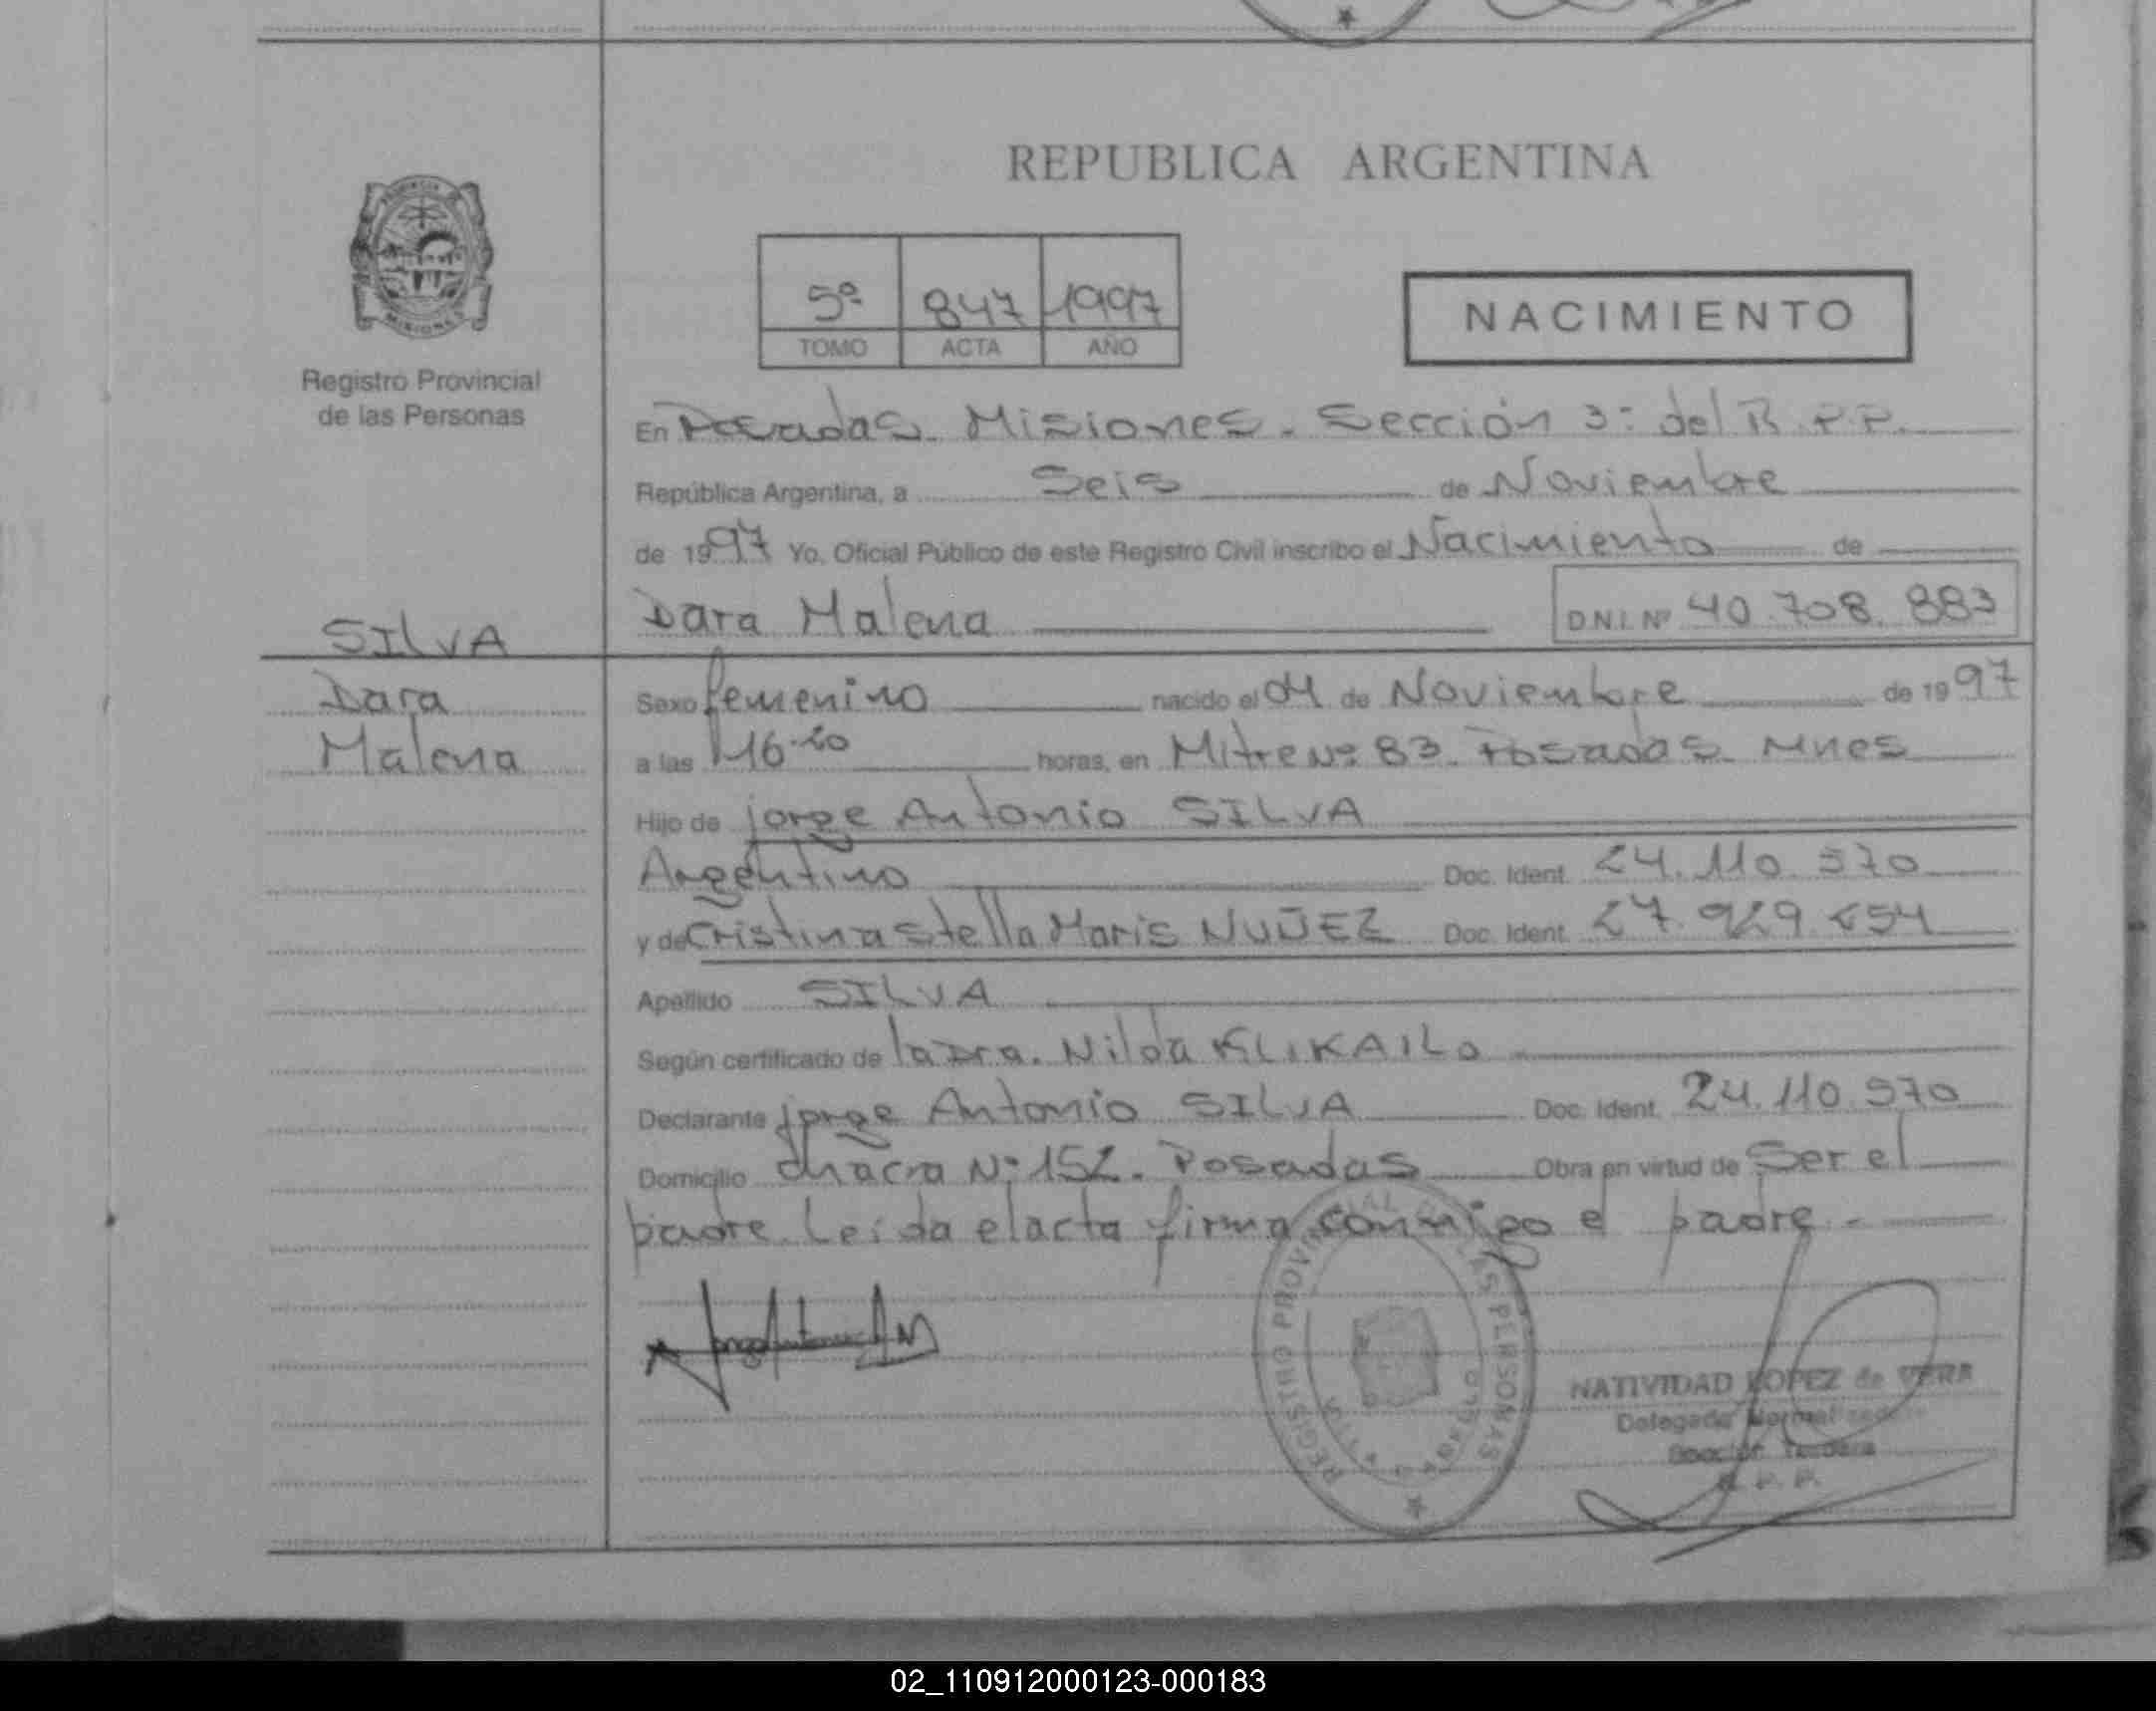 REPUBLICA ARGENTINA
MISIONES
Registro Provincial
de las Personas
5º 847 1997
TOMO ACTA AÑO
NACIMIENTO
En Posadas. Misiones. Sección 3: del R.P.P.
República Argentina, a Seis de Noviembre
de 1997 Yo, Oficial Público de este Registro Civil inscribo el Nacimiento de
Dara Malena D.N.I. Nº 40.708.883
SILVA
Dara
Malena
Sexo femenino nacido el 04 de Noviembre de 1997
a las 16.20 horas, en Mitre Nº 83. Posadas. Mnes
Hijo de Jorge Antonio SILVA
Argentino Doc. Ident. 24.110.570
y de Cristina Stella Maris NUÑEZ Doc. Ident. 27.929.254
Apellido SILVA
Según certificado de la Dra. Nilda
Declarante Jorge Antonio SILVA Doc. Ident. 24.110.570
Domicilio chacra Nº 152. Posadas Obra en virtud de Ser el
padre. Leída el acta firma conmigo el padre.-
REGISTRO PROVINCIAL DE LAS PERSONAS
NATIVIDAD LOPEZ de VERA
Delegada
R.P.P.
02_110912000123-000183